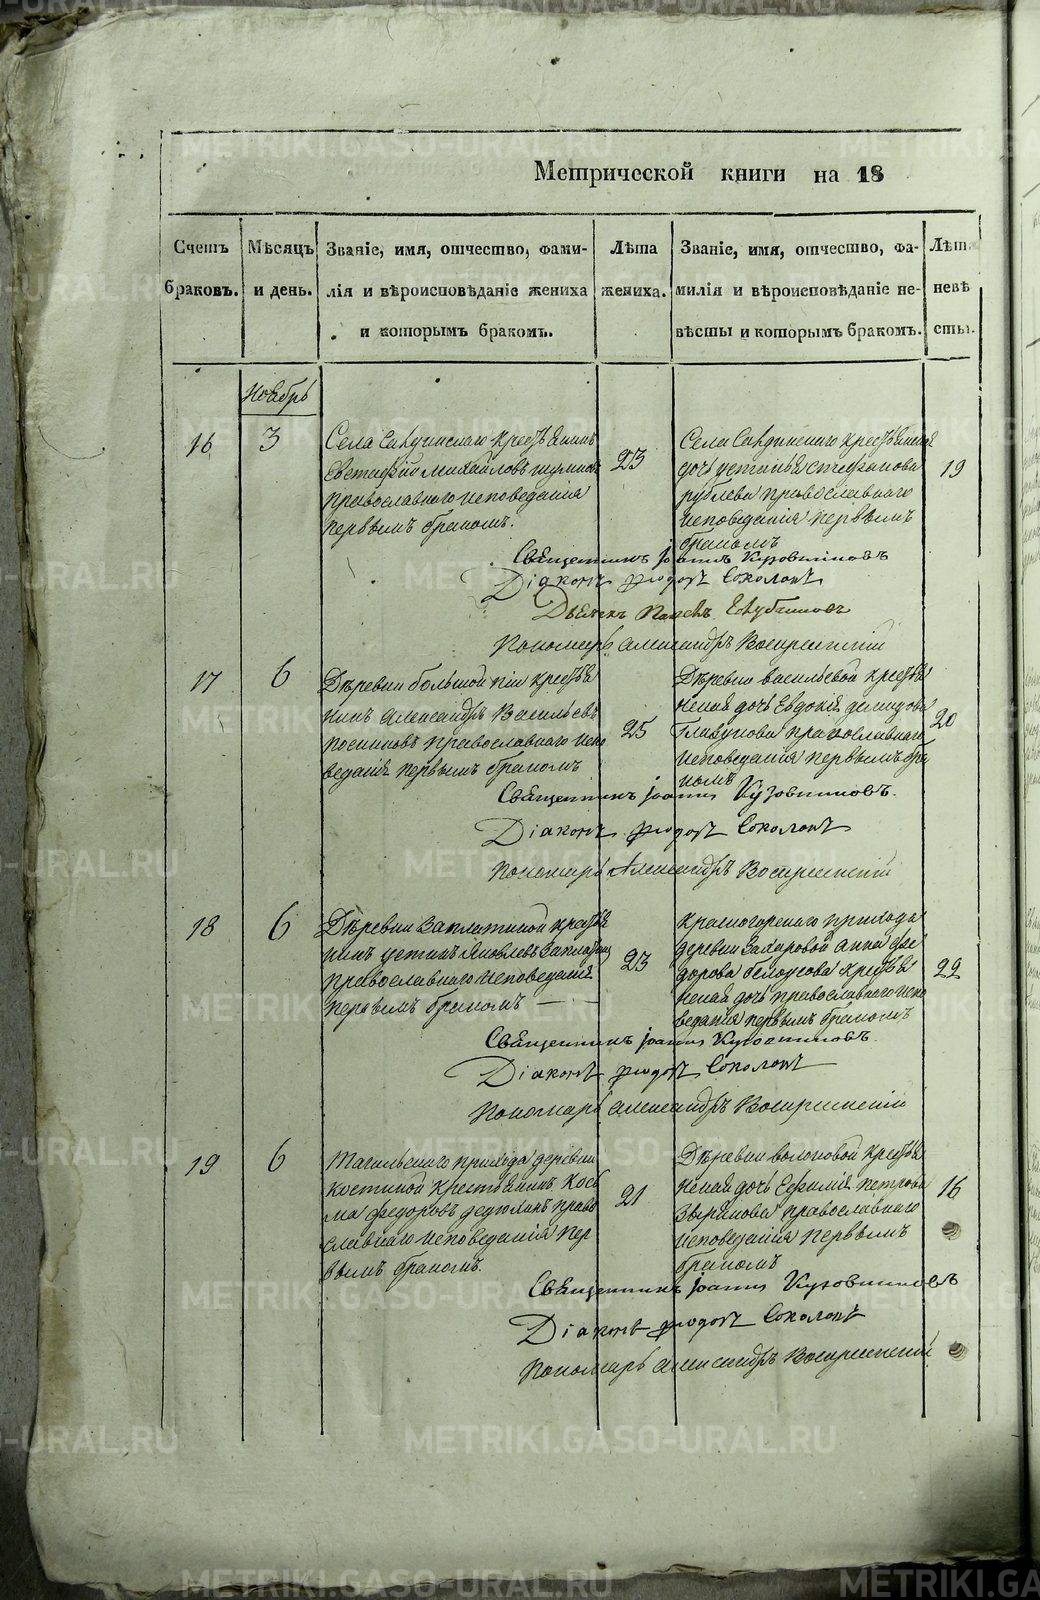 Метрической книги на 18
Счетъ браковъ.
Мѣсяцъ и день.
Званіе, имя, отчество, фамилія и вѣроисповѣданіе жениха и которымъ бракомъ.
Лѣта жениха.
Званіе, имя, отчество, фамилія и вѣроисповѣданіе невѣсты и которымъ бракомъ.
Лѣта невѣсты.
Ноябрь
16
3
Села крестьянинъ
Михайловъ
православнаго исповеданія
первымъ бракомъ.
23
Села крестьянина
дочь Устинья Стефанова
православнаго
исповеданія первымъ
бракомъ
19
Священникъ Іоаннъ Кузовниковъ
Діаконъ Соколовъ
Дьячекъ
Пономарь Александръ Воскресенскій
17
6
Деревни большой крестья
нинъ Александръ Васильевъ
православнаго испо
веданія первымъ бракомъ
25
Деревни васильевой крестья
нская дочь Евдокія
Глазунова православнаго
исповеданія первымъ бра
комъ
20
Священникъ Іоаннъ Кузовниковъ.
Діаконъ Соколовъ
Пономарь Александръ Воскресенскій
18
6
Деревни Заплатиной крестья
нинъ Устинъ Яковлевъ
православнаго исповеданія
первымъ бракомъ
23
Красногорскаго прихода
деревни Захаровой Анна Фе
дорова Белоусова крестья
нская дочь православнаго испо
веданія первымъ бракомъ
22
Священникъ Іоаннъ Кузовниковъ.
Діаконъ Соколовъ
Пономарь Александръ Воскресенскій
19
6
Тагильскаго прихода деревни
Костиной крестьянинъ Кось
ма Федоровъ Дедюхинъ право
славнаго исповеданія пер
вымъ бракомъ.
21
Деревни волоковой крестья
нская дочь Ефимія Петрова
Зырянова православнаго
исповеданія первымъ
бракомъ
16
Священникъ Іоаннъ Кузовниковъ
Діаконъ Соколовъ
Пономарь Александръ Воскресенскій
METRIKI.GASO-URAL.RU